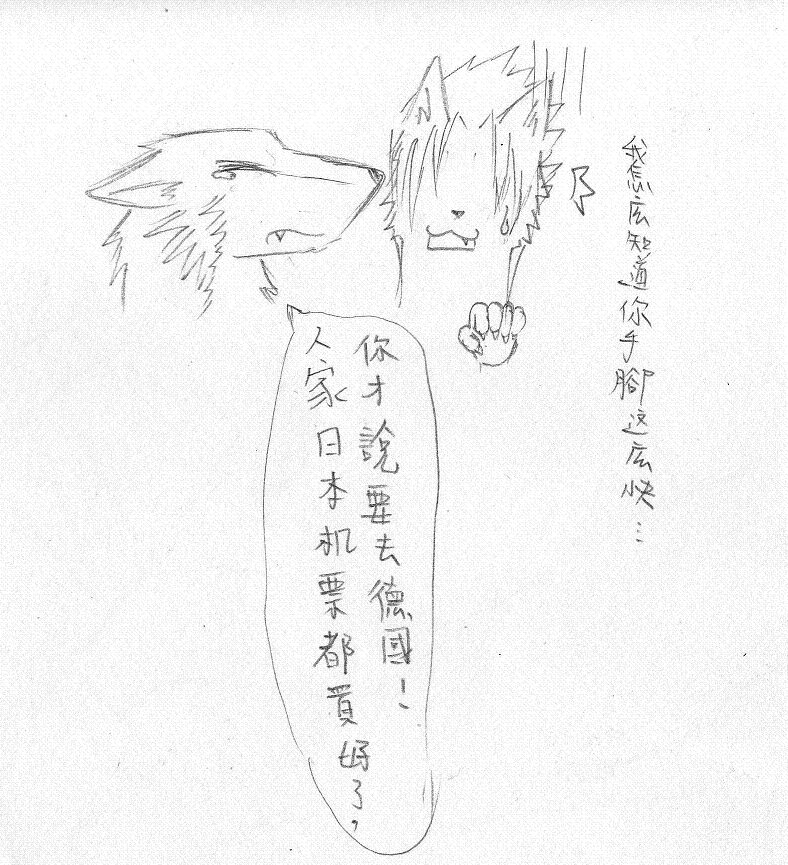 我怎広知道你手腳这広快…
你才說要去德國！
人家日本机票都買好了，